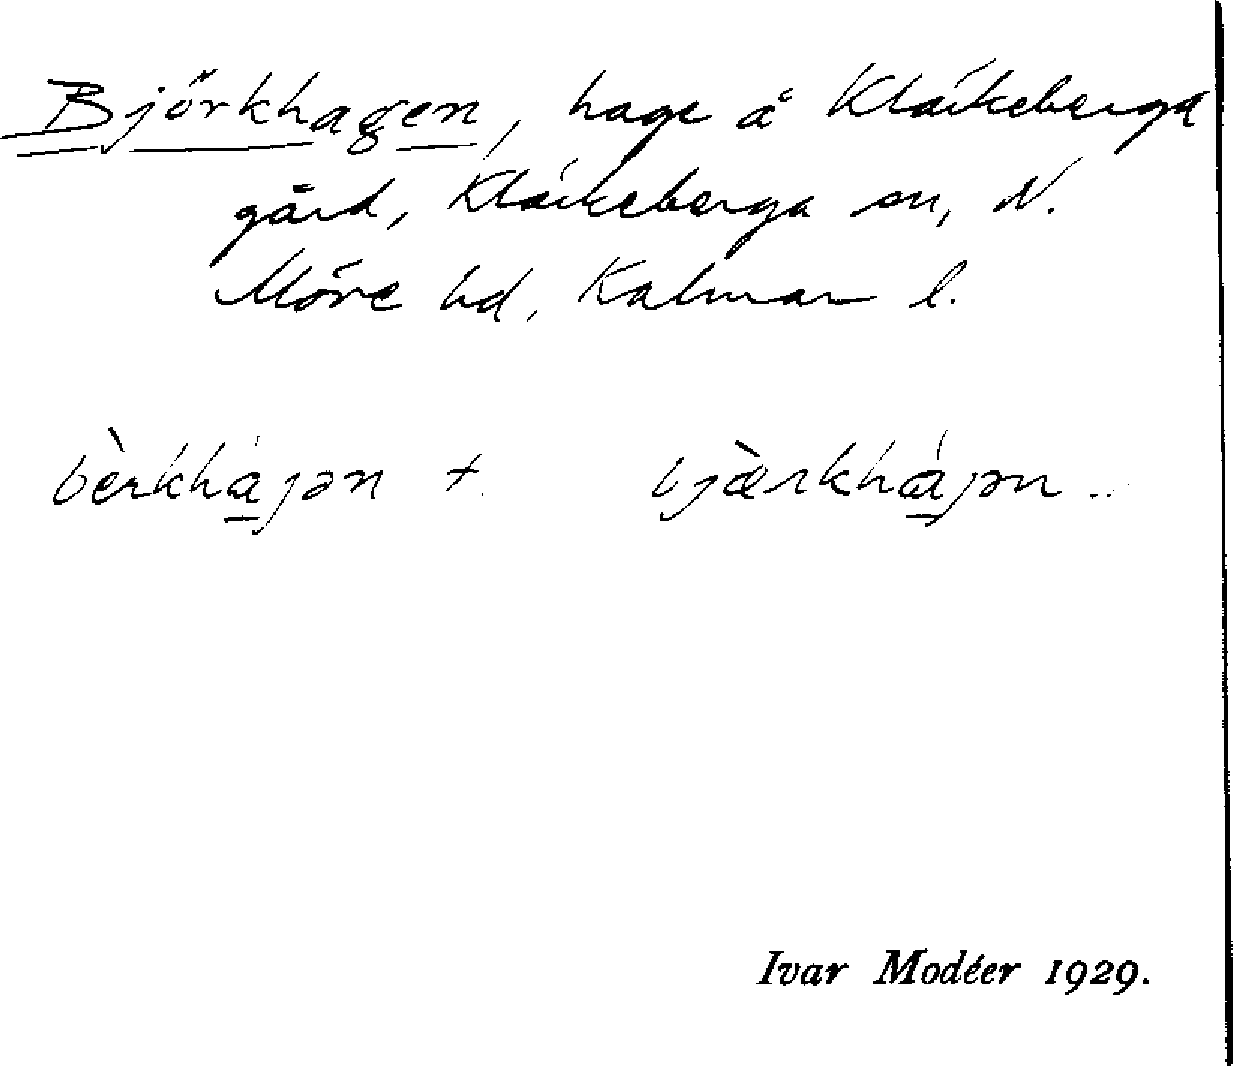 Björkhagen, hage å Kläckeberga
gård, Kläckeberga sn, N.
Möre hd, Kalmar l.
bèrkhájən +. bjæ̀rkhájən ..
Ivar Modéer 1929.